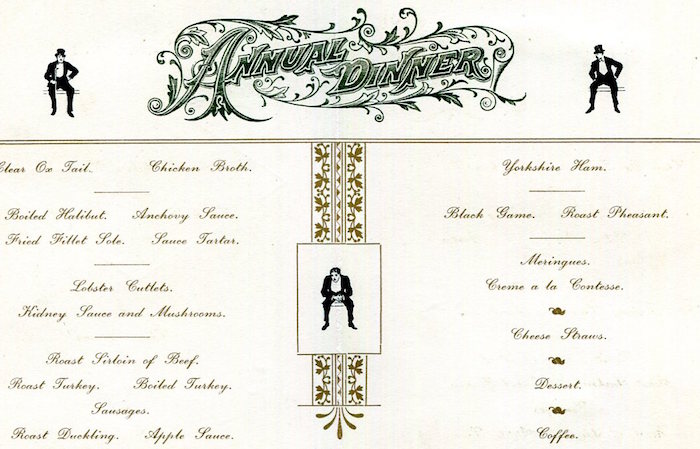 ANNUAL DINNER
Clear Ox Tail. Chicken Broth.
Boiled Halibut. Anchovy Sauce.
Fried Fillet Sole. Sauce Tartar.
Lobster Cutlets.
Kidney Sauce and Mushrooms.
Roast Sirloin of Beef.
Roast Turkey. Boiled Turkey.
Sausages.
Roast Duckling. Apple Sauce.
Yorkshire Ham.
Black Game. Roast Pheasant.
Meringues.
Creme a la Contesse.
Cheese Straws.
Dessert.
Coffee.